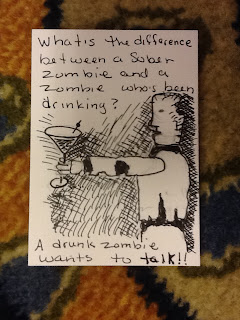 What's the difference
between a Sober
zombie and a
zombie who's been
drinking?
A drunk zombie
wants to talk!!